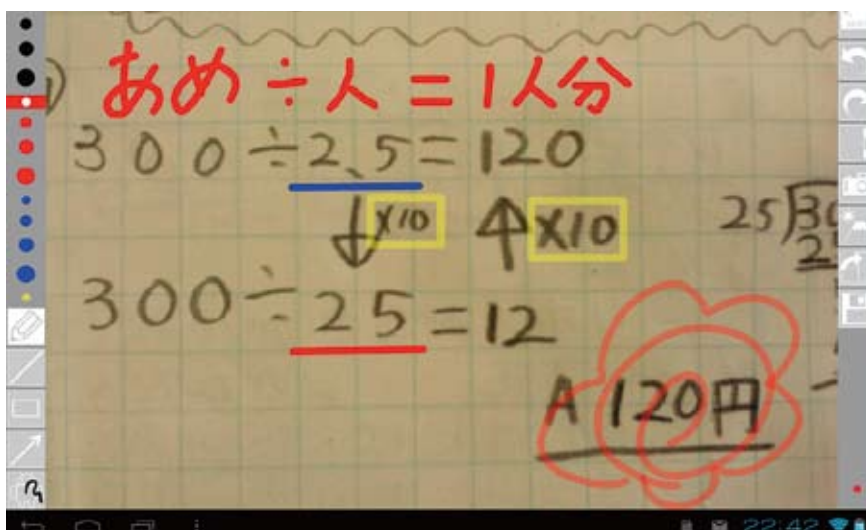 あめ÷人=1人分
300÷2.5=120
↓×10 ↑×10
25)30
2
300÷25=12
A 120円
22:42